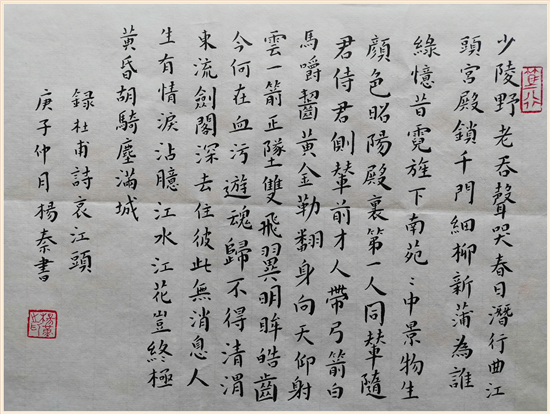 少陵野老吞聲哭春日潛行曲江
頭宮殿鎖千門細柳新蒲為誰
綠憶昔霓旌下南苑〻中景物生
顏色昭陽殿裏第一人同輦隨
君侍君側輦前才人帶弓箭白
馬嚼齧黃金勒翻身向天仰射
雲一箭正墜雙飛翼明眸皓齒
今何在血污遊魂歸不得清渭
東流劍閣深去住彼此無消息人
生有情淚沾臆江水江花豈終極
黃昏胡騎塵滿城
錄杜甫詩哀江頭
庚子仲月楊秦書